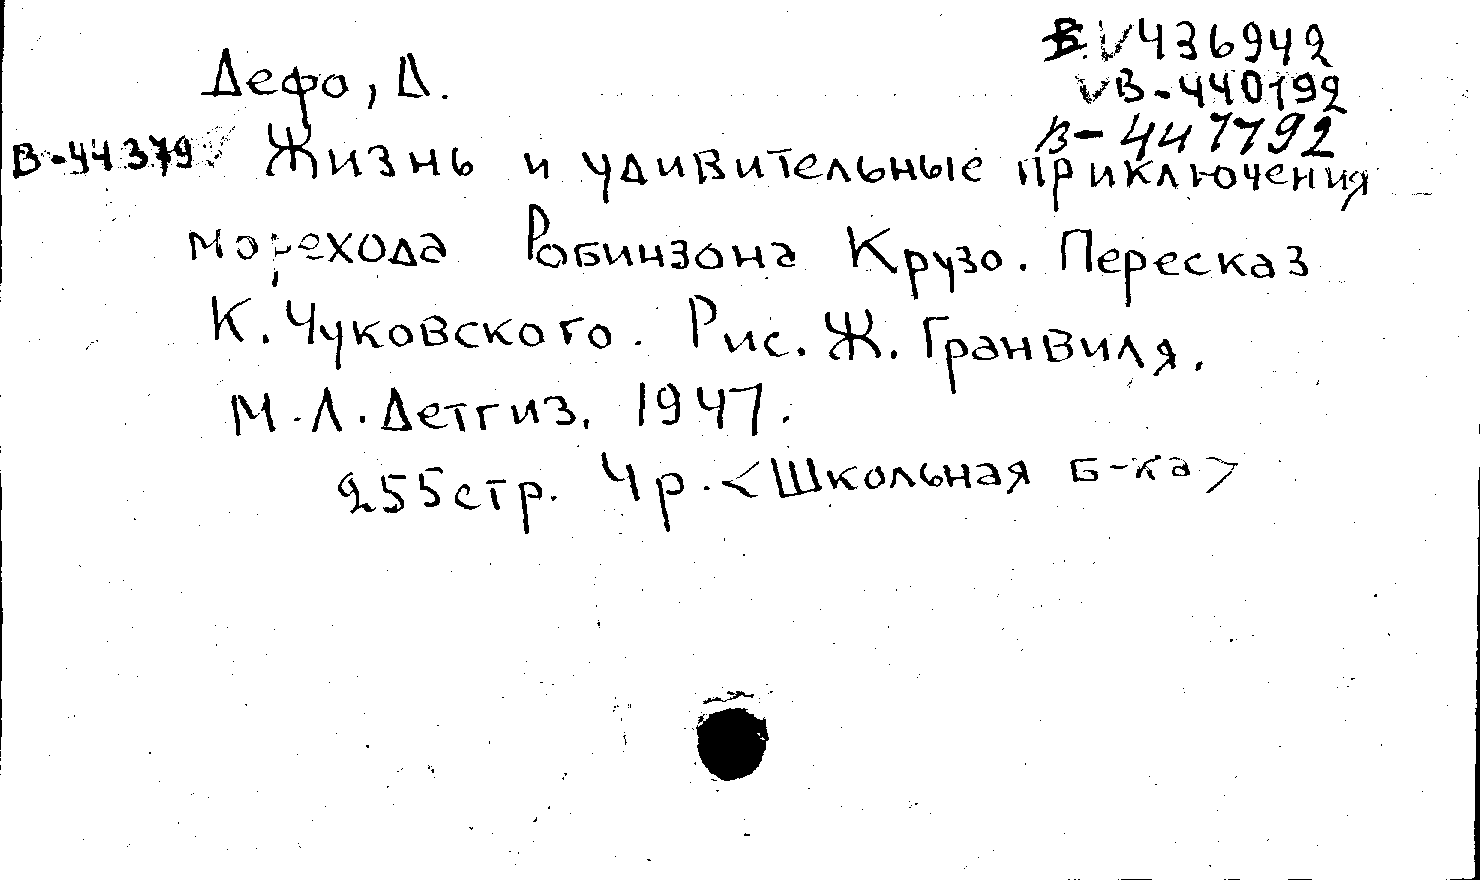 В 436942
Дефо, Д.
В-440192
В-447792
В-44379 Жизнь и удивительные приключения
морехода Робинзона Крузо. Пересказ
К. Чуковского. Рис. Ж. Гранвиля.
М.-Л. Детгиз. 1947.
255 стр. 4 р. <Школьная б-ка>